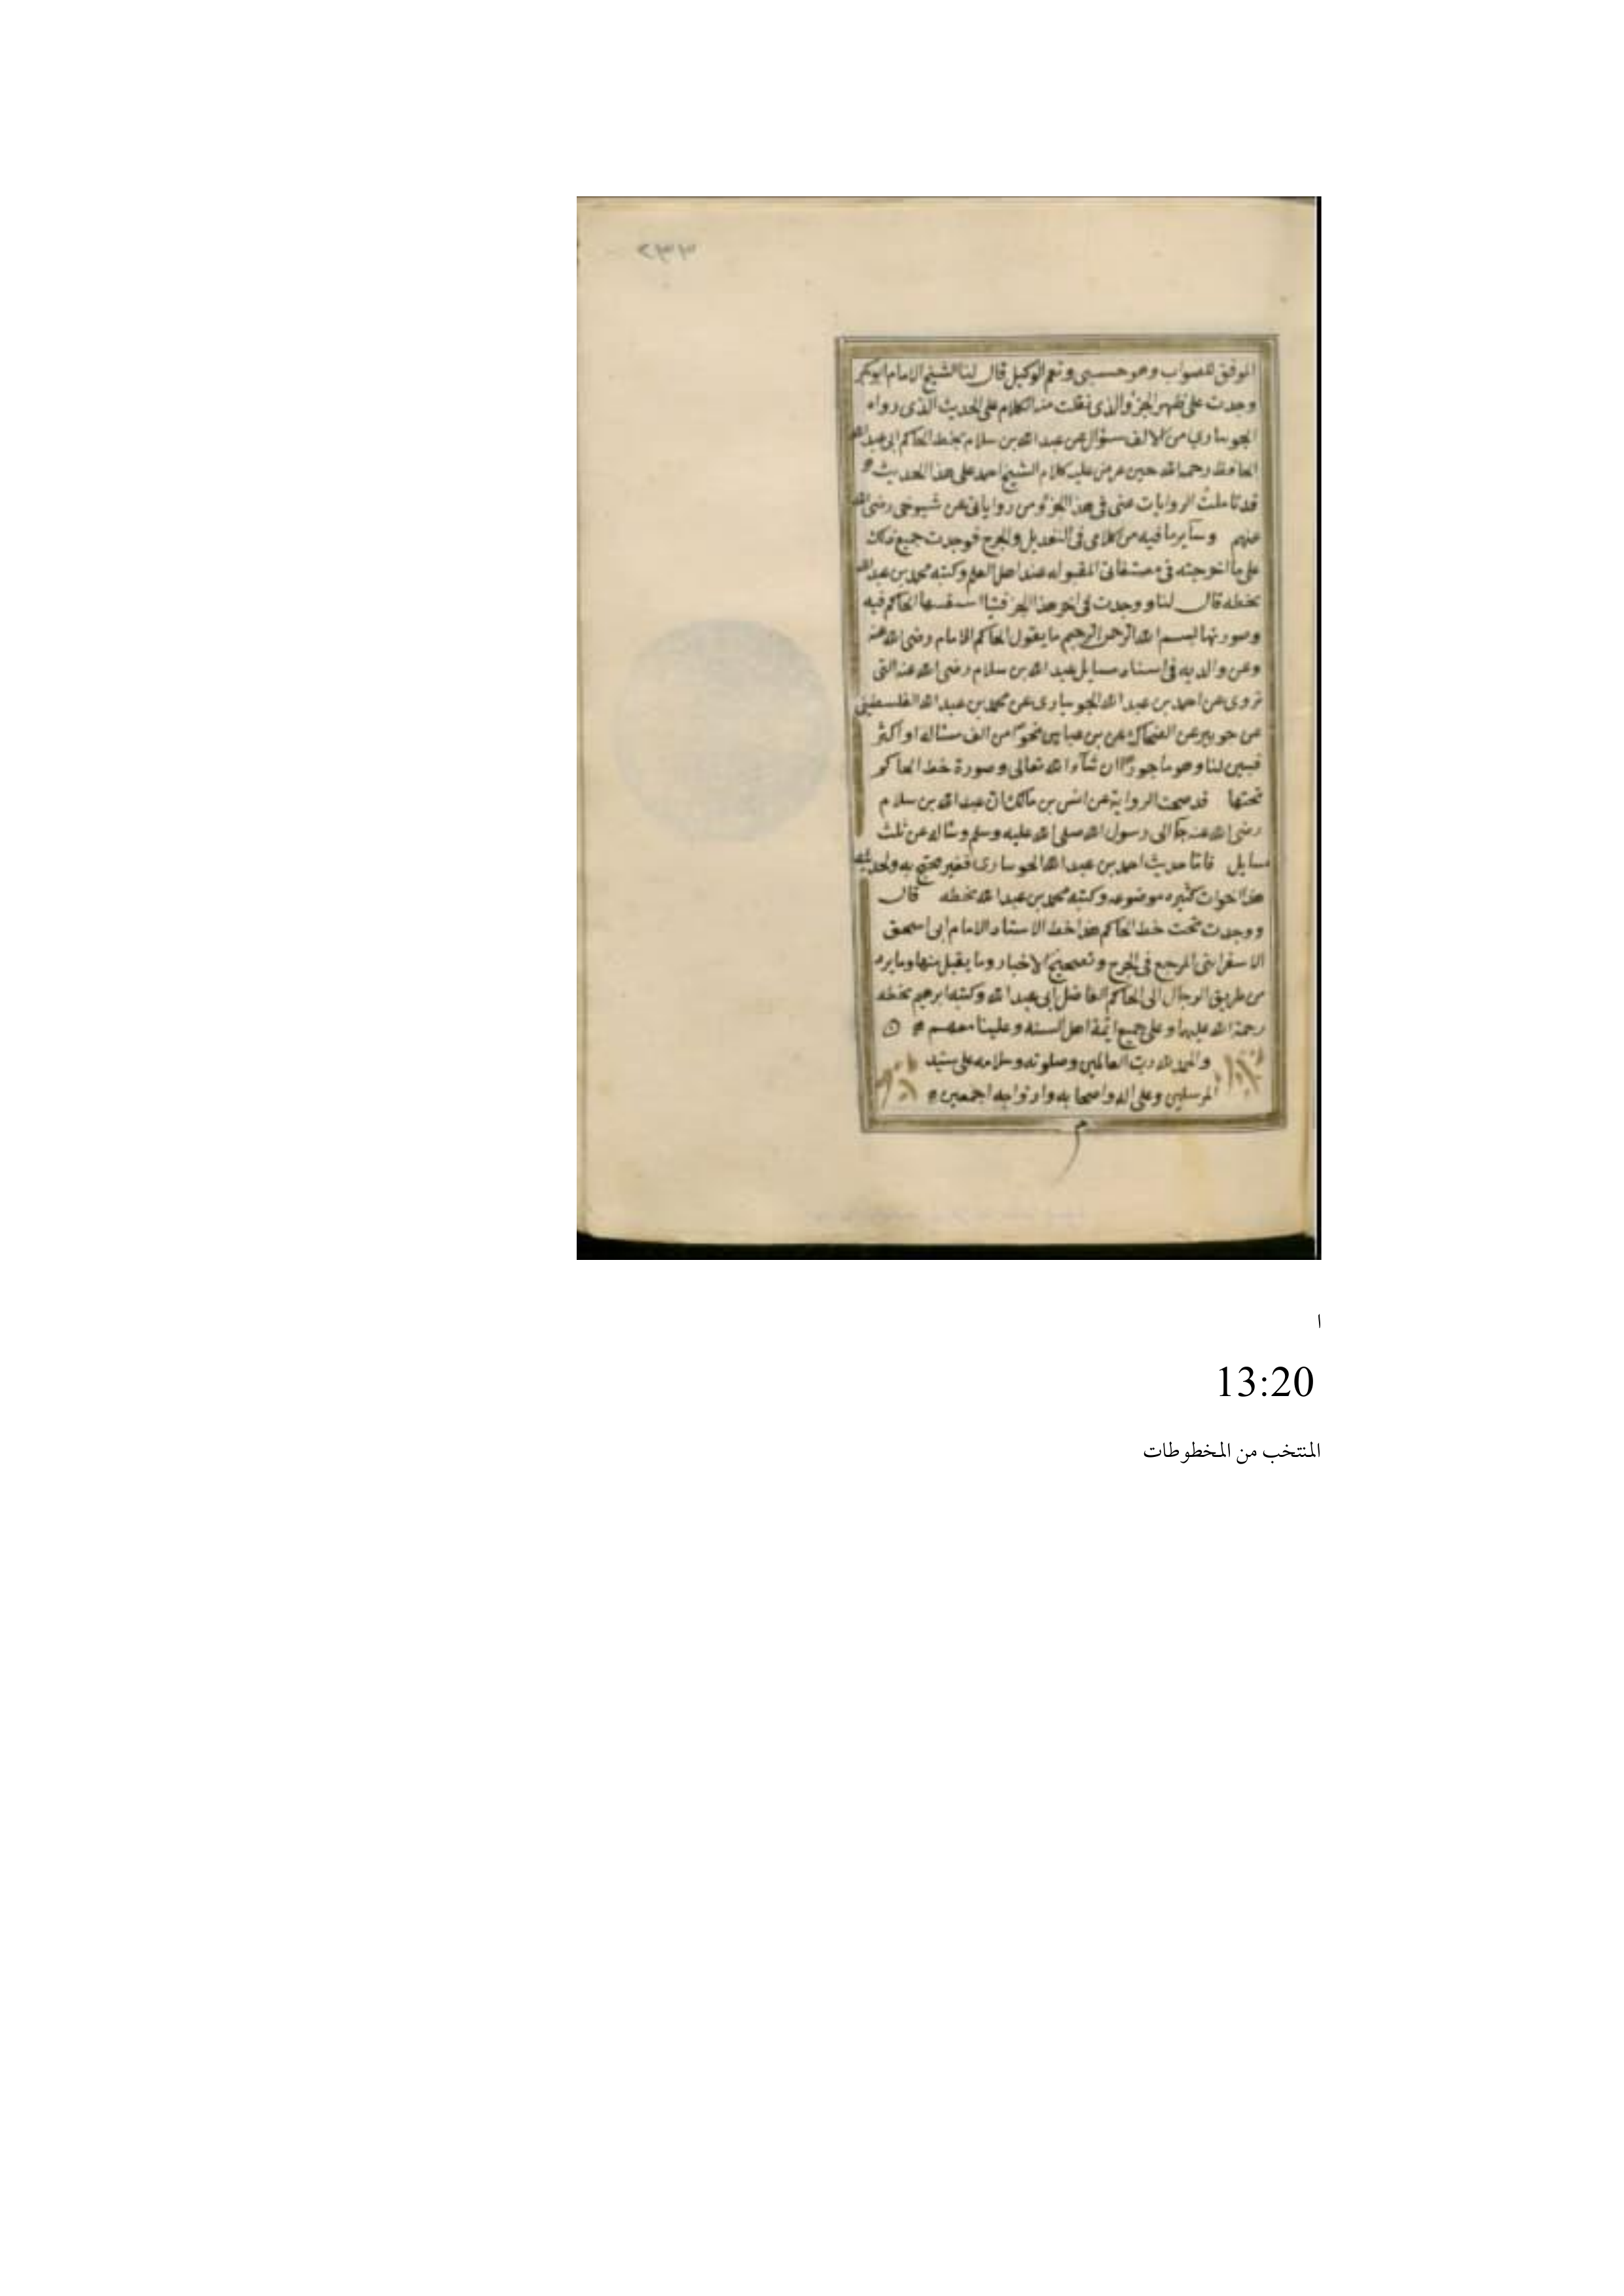 ٢٣٣
الموفق للصواب وهو حسبى ونعم الوكيل قال لنا الشيخ الامام ابو بكر
وجدت على ظهر الجزؤ الذى نقلت منه الكلام على الحديث الذى رواه
الجويبارى من الالف سؤال عن عبد الله بن سلام بخط الحاكم ابى عبد الله
الحافظ رحمه الله حين عرض عليه كلام الشيخ احمد على هذا الحديث
قد تاملت الروايات عنى فى هذ الجزؤ من رواياتى عن شيوخى رضى الله
عنهم وسآير ما فيه من كلامى فى التعديل والجرح فوجدت جميع ذلك
على ما اخرجته فى مصنفاتى المقبوله عند اهل العلم وكتبه محمد بن عبد الله
بخطه قال لنا ووجدت فى اخر هذا الجز الحاكم فيه
وصورتها بسم الله الرحمن الرحيم ما يقول الحاكم الامام رضى الله عنه
وعن والديه فى اسناد مسايل عبد الله بن سلام رضى الله عنه التى
تروى عن احمد بن عبد الله الجويبارى عن محمد بن عبد الله الفلسطينى
عن جويبر عن الضحاك عن بن عباس نحوًا من الف مسئالة او اكثر
فيبين لنا وهو ماجورًا ان شآء الله تعالى وصورة خط الحاكم
تحتها قد صحت الرواية عن انس بن مالك ان عبد الله بن سلام
رضى الله عنه جآ الى رسول الله صلى الله عليه وسلم وسأله عن ثلث
مسايل فامّا حديث احمد بن عبد الله الجويبارى فغير محتج به ولحديثه
هذا اخوات كثيره موضوعه وكتبه محمد بن عبد الله بخطه قال
ووجدت تحت خط الحاكم هذا خط الاستاد الامام ابى اسحق
الاسفراينى المرجع فى الجرح وتصحيح الاخبار وما يقبل منها وما يرد
من طريق الرجال الى الحاكم الفاضل ابى عبد الله وكتبه ابرهيم بخطه
رحمة الله عليهما وعلى جميع ايمة اهل السنه وعلينا معهم
والحمد لله رب العالمين وصلوته وسلامه على سيد
المرسلين وعلى اله واصحابه وازواجه اجمعين
م
ا
13:20
المنتخب من المخطوطات